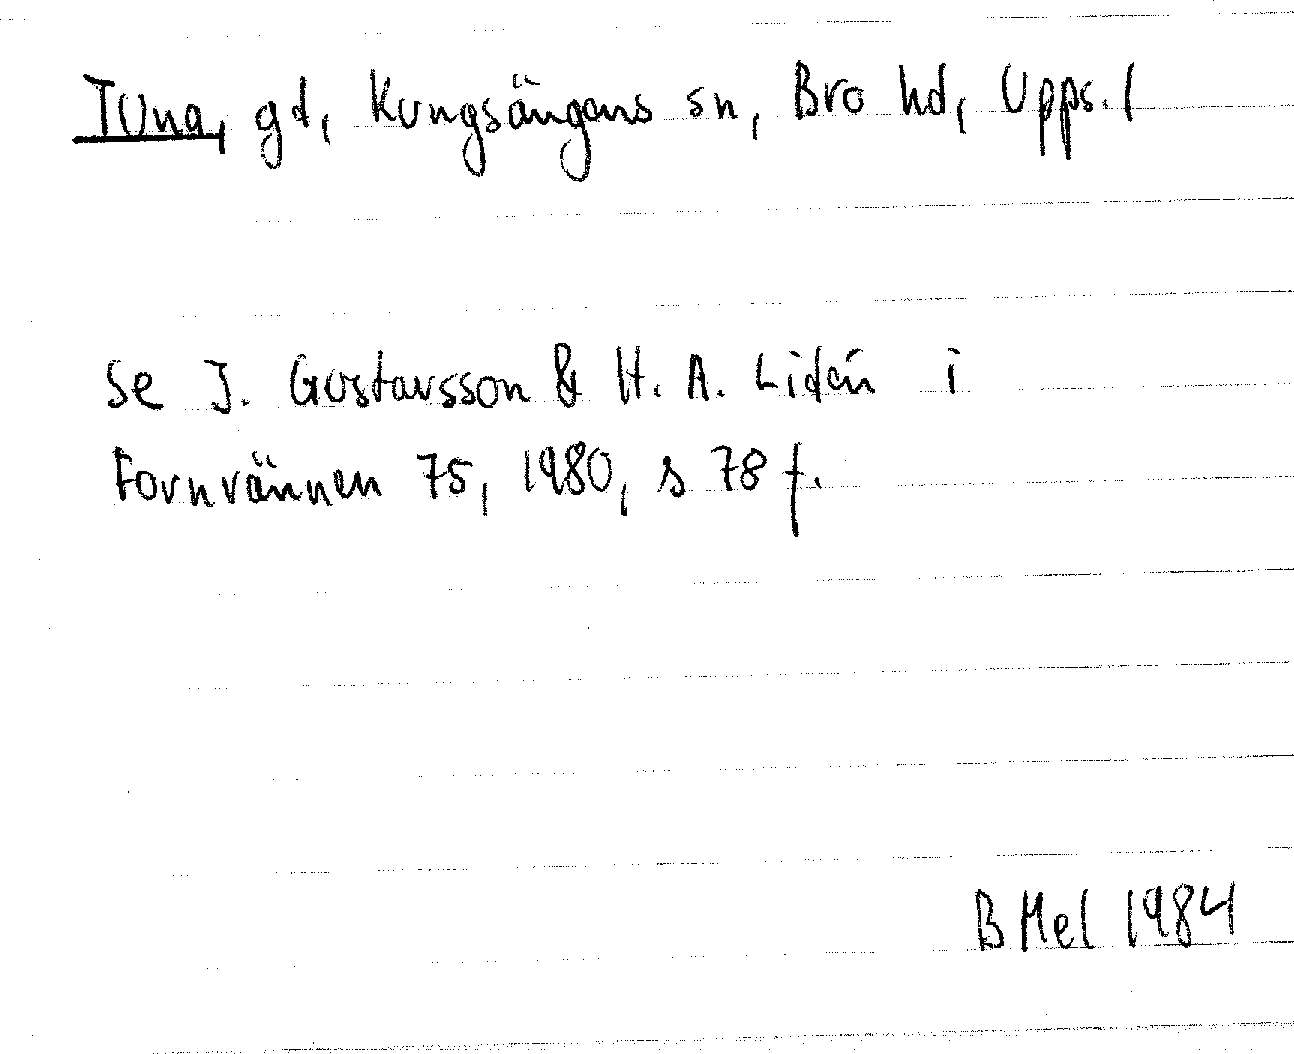 Tuna, gd, Kungsängens sn, Bro hd, Upps. l
Se J. Gustavsson & H. A. Lidén i
Fornvännen 75, 1980, s 78 f.
B Mel 1984